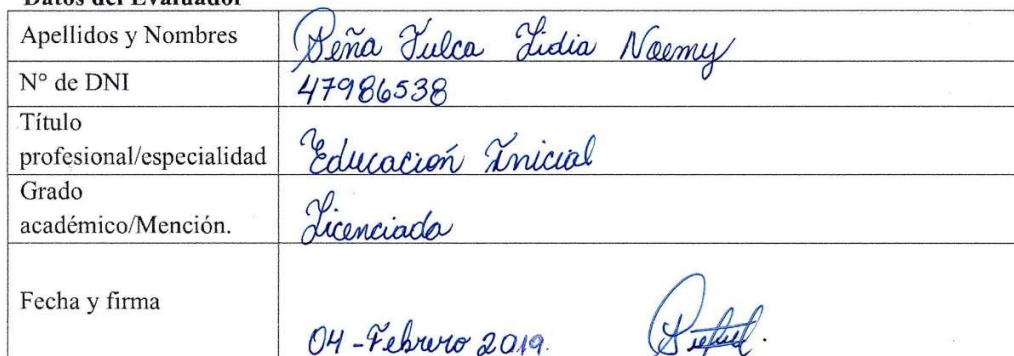 Datos del Evaluador
Apellidos y Nombres
Peña Julca Lidia Noemy
N° de DNI
47986538
Título
profesional/especialidad
Educación Inicial
Grado
académico/Mención.
Licenciada
Fecha y firma
04-Febrero 2019.